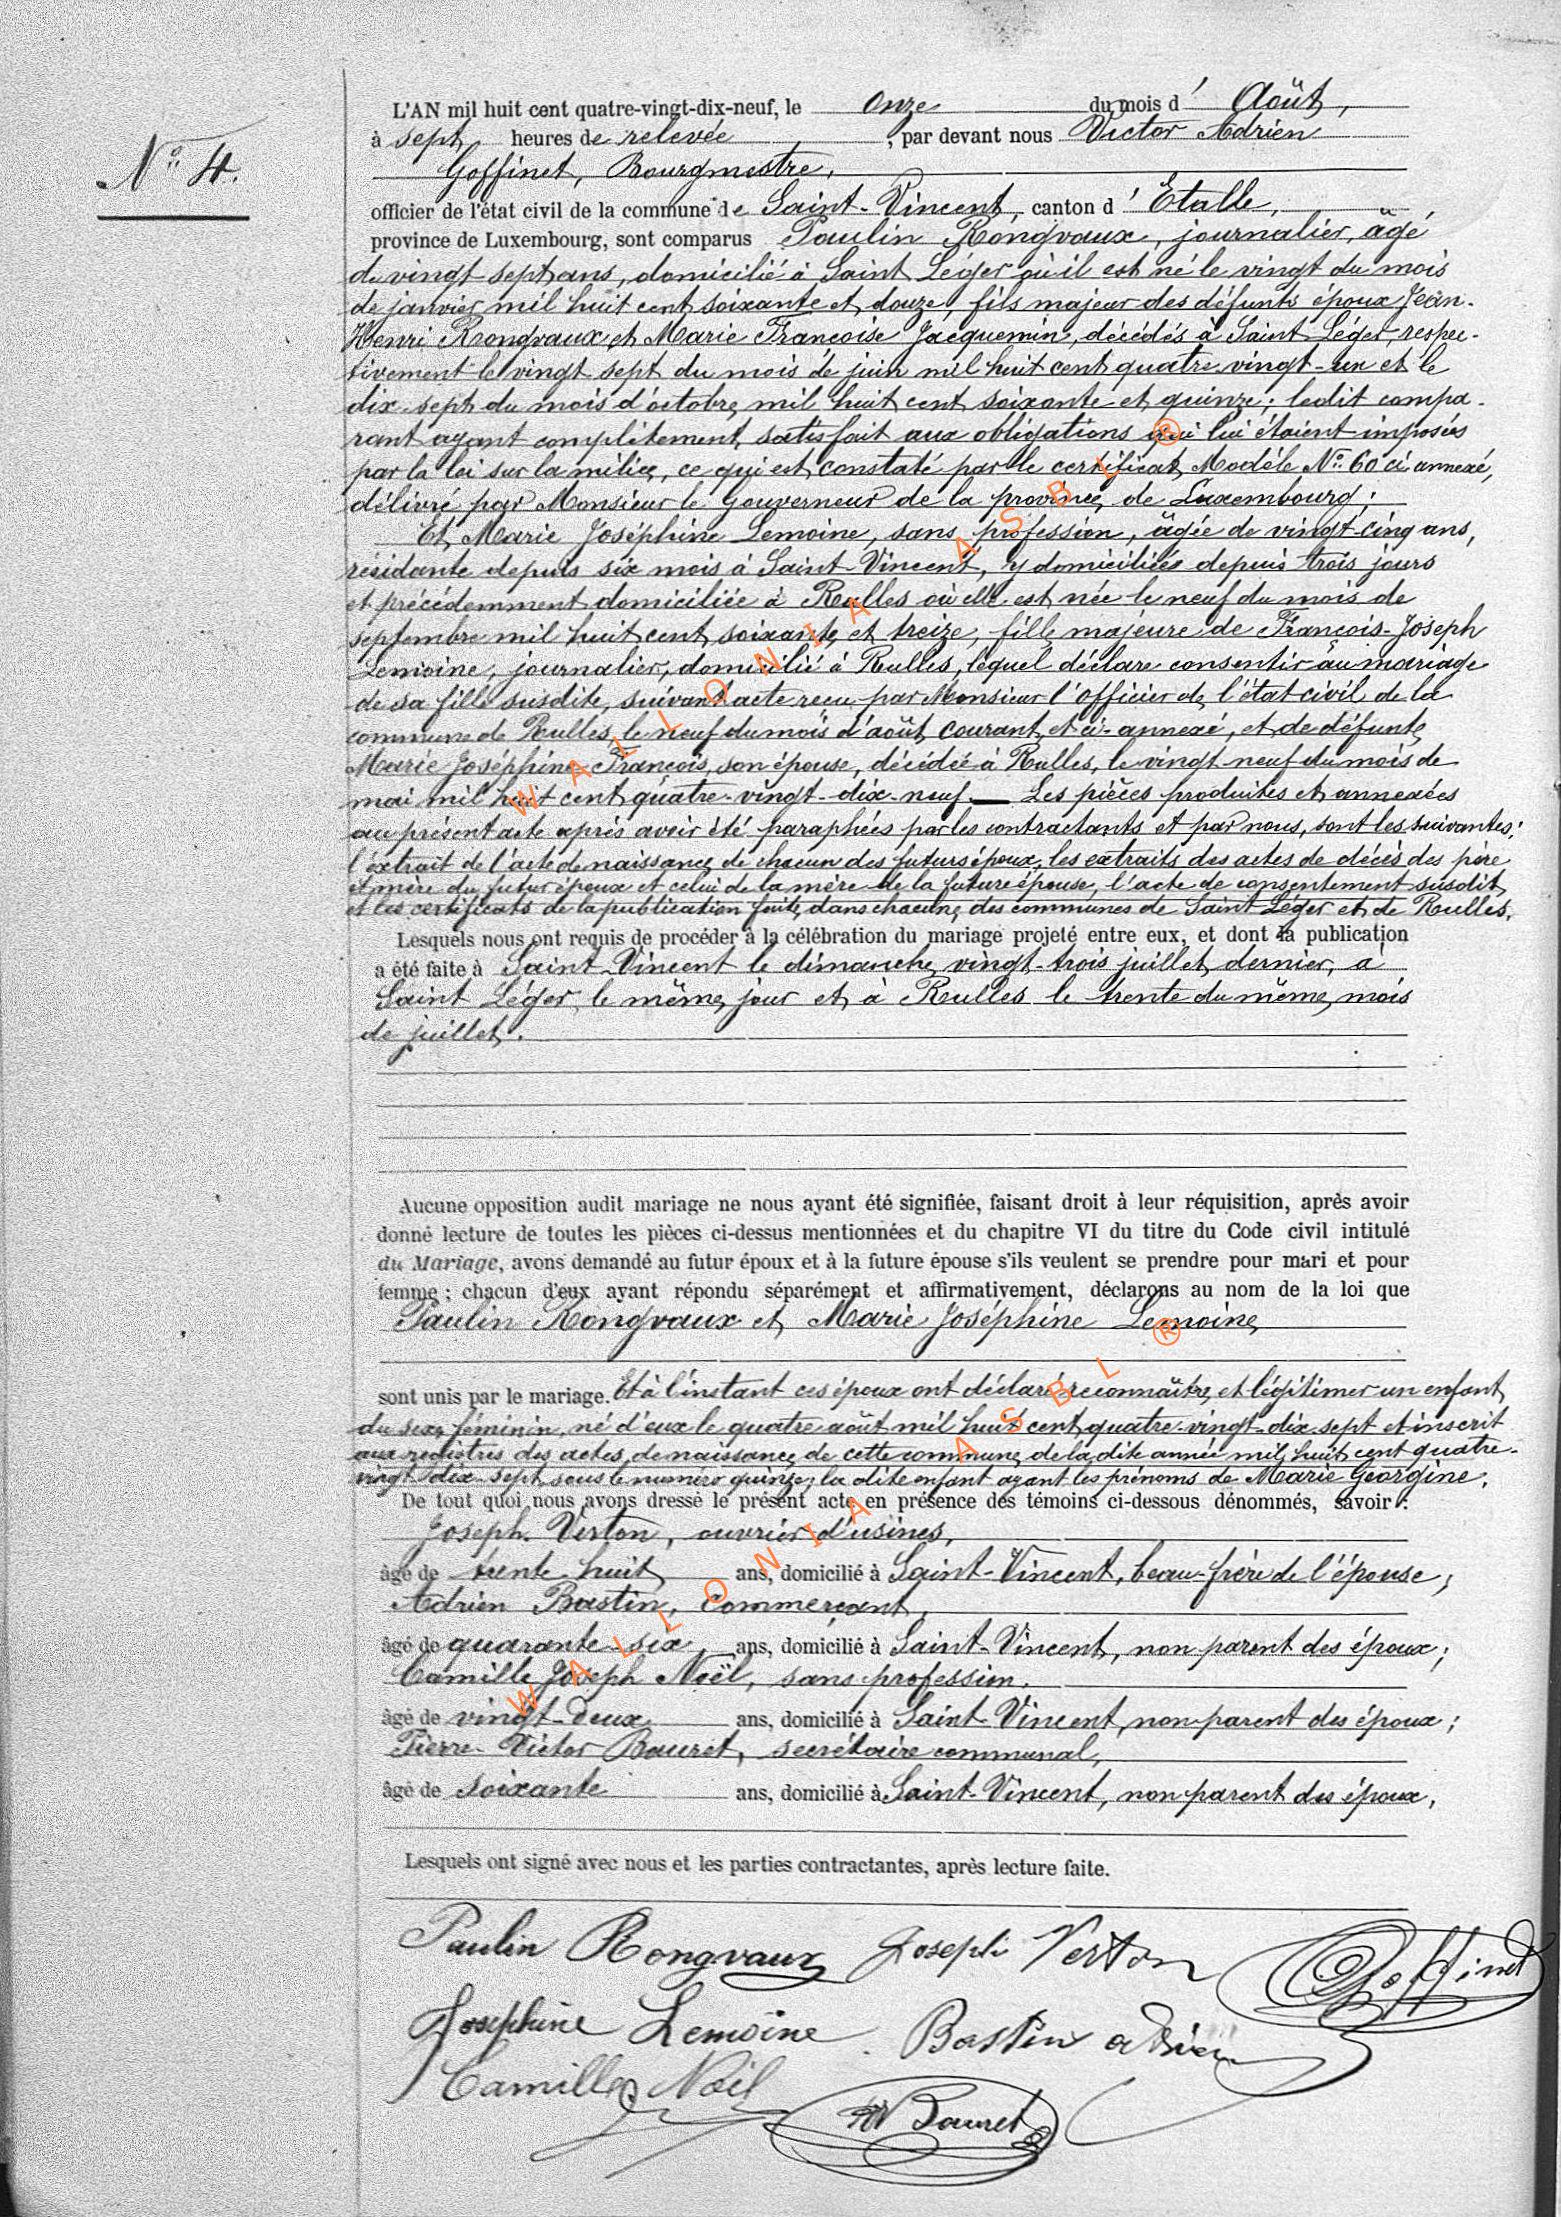 N° 4.
L'AN mil huit cent quatre-vingt-dix-neuf, le onze du mois d' Août,
à sept heures de relevée, par devant nous Victor Adrien
Goffinet, Bourgmestre,
officier de l'état civil de la commune de Saint-Vincent, canton d' Etalle,
province de Luxembourg, sont comparus Paulin Rongvaux, journalier, âgé
de vingt sept ans, domicilié à Saint Léger où il est né le vingt du mois
de janvier mil huit cent soixante et douze, fils majeur des défunts époux Jean-
Henri Rongvaux et Marie Françoise Jacquemin, décédés à Saint Léger, respec-
tivement le vingt sept du mois de juin mil huit cent quatre-vingt-un et le
dix-sept du mois d'octobre mil huit cent soixante et quinze; ledit compa-
rant ayant complètement satisfait aux obligations qui lui étaient imposées
par la loi sur la milice, ce qui est constaté par le certificat Modèle N° 60 ci annexé,
délivré par Monsieur le Gouverneur de la province de Luxembourg;
Et Marie Joséphine Lemoine, sans profession, âgée de vingt-cinq ans,
résidante depuis six mois à Saint-Vincent, y domiciliée depuis trois jours
et précédemment domiciliée à Rulles où elle est née le neuf du mois de
septembre mil huit cent soixante et treize, fille majeure de François-Joseph
Lemoine, journalier, domicilié à Rulles, lequel déclare consentir au mariage
de sa fille susdite, suivant acte reçu par Monsieur l'officier de l'état civil de la
commune de Rulles le neuf du mois d'août courant et ci-annexé, et de défunte
Marie Joséphine François, son épouse, décédée à Rulles, le vingt neuf du mois de
mai mil huit cent quatre-vingt-dix-neuf. — Les pièces produites et annexées
au présent acte après avoir été paraphées par les contractants et par nous, sont les suivantes:
l'extrait de l'acte de naissance de chacun des futurs époux, les extraits des actes de décès des père
et mère du futur époux et celui de la mère de la future épouse, l'acte de consentement susdit
et les certificats de la publication faite dans chacune des communes de Saint-Léger et de Rulles.
Lesquels nous ont requis de procéder à la célébration du mariage projeté entre eux, et dont la publication
a été faite à Saint-Vincent le dimanche vingt-trois juillet dernier, à
Saint Léger le même jour et à Rulles le trente du même mois
de juillet.
Aucune opposition audit mariage ne nous ayant été signifiée, faisant droit à leur réquisition, après avoir
donné lecture de toutes les pièces ci-dessus mentionnées et du chapitre VI du titre du Code civil intitulé
du Mariage, avons demandé au futur époux et à la future épouse s'ils veulent se prendre pour mari et pour
femme; chacun d'eux ayant répondu séparément et affirmativement, déclarons au nom de la loi que
Paulin Rongvaux et Marie Joséphine Lemoine
sont unis par le mariage. Et à l'instant ces époux ont déclaré reconnaître et légitimer un enfant
du sexe féminin, né d'eux le quatre août mil huit cent quatre-vingt-dix-sept et inscrit
aux registres des actes de naissance de cette commune de la dite année mil huit cent quatre-
vingt-dix-sept sous le numéro quinze; la dite enfant ayant les prénoms de Marie Georgine.
De tout quoi nous avons dressé le présent acte en présence des témoins ci-dessous dénommés, savoir:
Joseph Verton, ouvrier d'usines,
âgé de trente huit ans, domicilié à Saint-Vincent, beau-frère de l'épouse;
Adrien Bastin, commerçant,
âgé de quarante-six ans, domicilié à Saint-Vincent, non parent des époux;
Camille Joseph Noël, sans profession,
âgé de vingt-deux ans, domicilié à Saint-Vincent, non parent des époux;
Pierre-Victor Bauret, secrétaire communal,
âgé de soixante ans, domicilié à Saint-Vincent, non parent des époux,
Lesquels ont signé avec nous et les parties contractantes, après lecture faite.
Paulin Rongvaux Joseph Verton Goffinet
Josephine Lemoine Bastin adrien
Camille Noël
PV Bauret
WALLONIA ASBL ®
WALLONIA ASBL ®